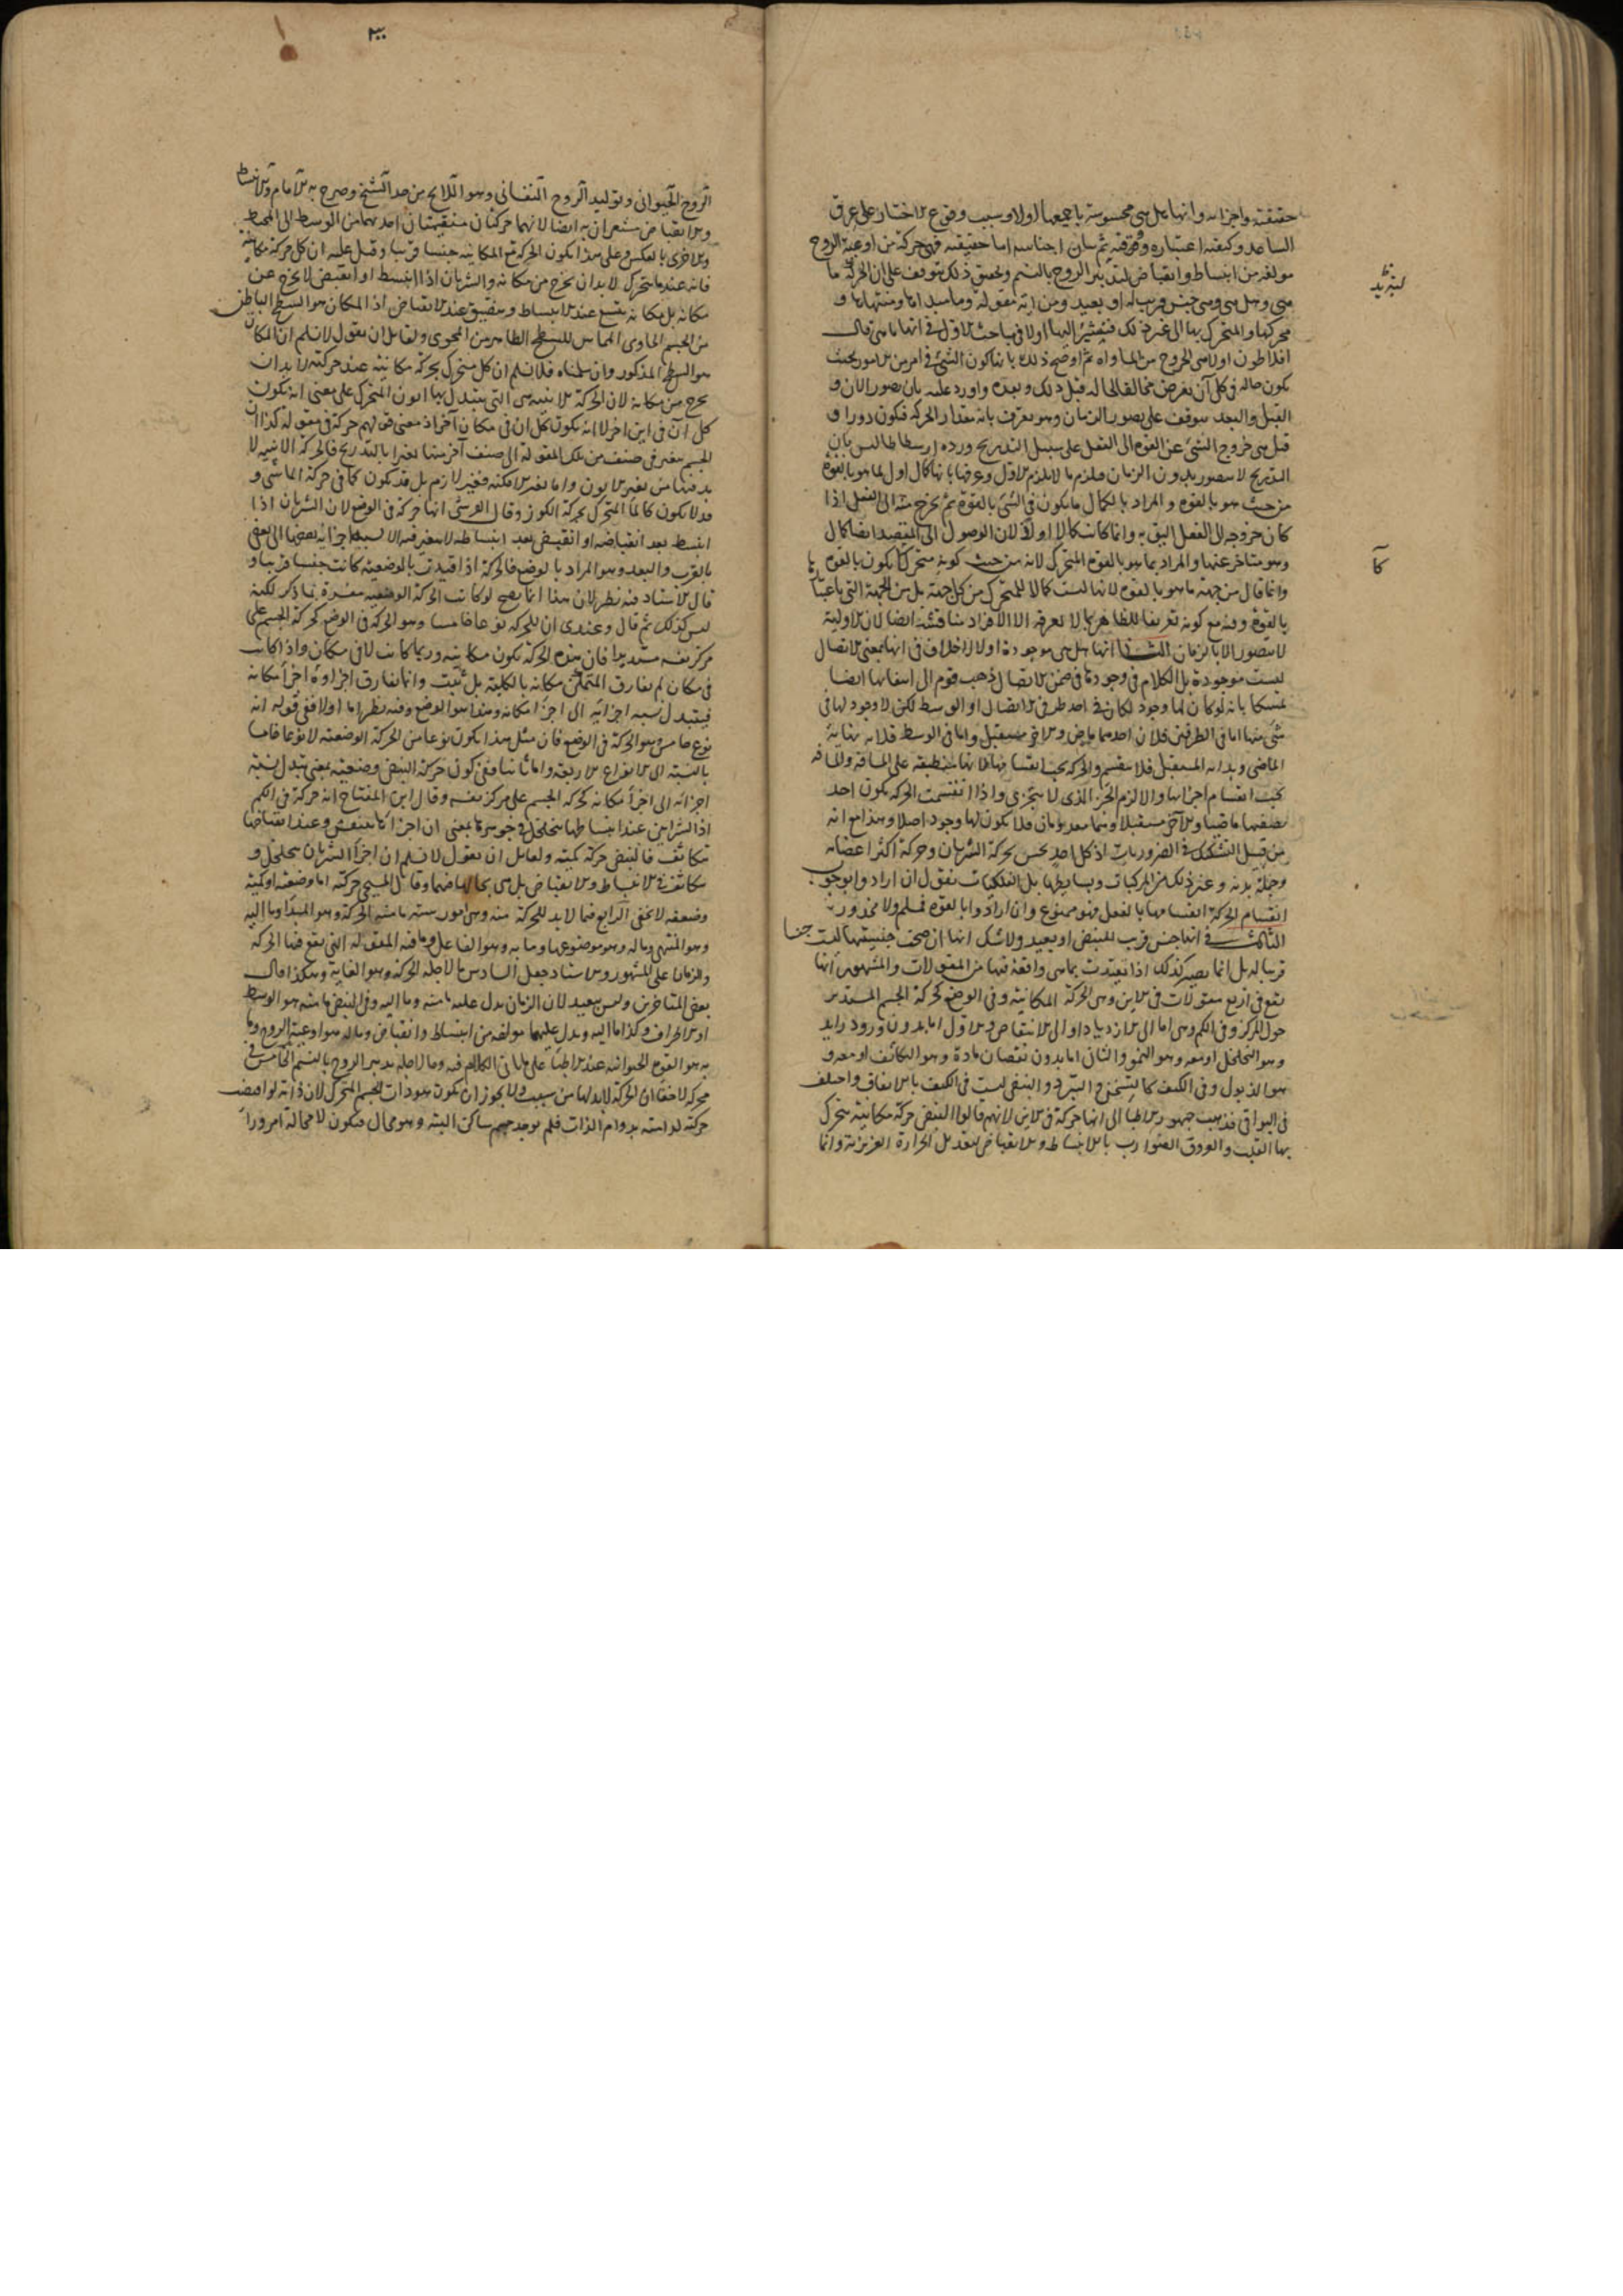 حقيقته واجزائه وانها هل هى محسوسة باجمعها اولا وسبب وقوع الاختيار على عرق
الساعد وكيفية اعتباره ثم بيان اجناسه اما حقيقته فهى حركة من اوعية الروح
مؤلفة من انبساط وانقباض لتدبير الروح بالنسيم وتحقيق ذلك يتوقف على ان الحركة ما
هى وهل هى وهى جنس قريب له او بعيد ومن اية مقولة وما مبداها ومنتهاها و
محركها والمتحرك بها الى غير ذلك فنشير اليها اولا فى مباحث الاول فى انها ما هى قال
افلاطون اولا هى الخروج من المساواة ثم اوضح ذلك بانها كون الشئ فى امر من الامور بحيث
يكون حاله فى كل آن يفرض مخالفا لحاله قبل ذلك وبعده واورد عليه بان تصور الان و
القبل والبعد يتوقف على تصور الزمان وهو يعرف بانه مقدار الحركة فيكون دورا و
قيل هى خروج الشئ عن القوة الى الفعل على سبيل التدريج ورده ارسطاطاليس بان
التدريج لا يتصور بدون الزمان فيلزم ما لزم الاول وعرفها بانها كمال اول لما هو بالقوة
من حيث هو بالقوة والمراد بالكمال ما يكون فى الشئ بالقوة ثم يخرج منه الى الفعل اذا
كان خروجه الى الفعل اليق به وانما كانت كمالا اولا لان الوصول الى المقصد ايضا كمال
وهو متأخر عنها والمراد بما هو بالقوة المتحرك لانه من حيث كونه متحركا يكون بالقوة
وانما قال من جهة ما هو بالقوة لانها ليست كمالا للمتحرك من كل جهة بل من الجهة التى باعتبارها
بالقوة وفيه مع كونه تعريفا للظاهر بما لا يعرفه الا الافراد مناقشة ايضا لان الاولية
لا تتصور الا بالزمان الثانى انها هل هى موجودة اولا لا خلاف فى انها بمعنى الاتصال
ليست موجودة بل الكلام فى وجودها فى ضمن الاتصال ذهب قوم الى انتفائها ايضا
تمسكا بانه لو كان لها وجود لكان فى احد طرفى الاتصال او الوسط لكن لا وجود لها فى
شئ منها اما فى الطرفين فلان احدهما ماض والاخر مستقبل واما فى الوسط فلانه نهاية
الماضى وبداية المستقبل فلا ينقسم والحركة يجب انقسامها لانها منطبقة على المسافة والمسافة
يجب انقسام اجزائها والا لزم الجزء الذى لا يتجزى واذا انقسمت الحركة يكون احد
نصفيها ماضيا والآخر مستقبلا وهما معدومان فلا يكون لها وجود اصلا وهذا مع انه
من قبيل التشكيك فى الضروريات اذ كل احد يحس بحركة الشريان وحركة اكثر اعضائه
وجملة بدنه وغير ذلك من المركبات وبسايطها بل الفلكيات نقول ان ارادوا بوجوب
انقسام الحركة انقسامها بالفعل فهو ممنوع وان ارادوا بالقوة فمسلم ولا محذور
الثالث فى انها جنس قريب للنبض او بعيد ولا شك انها ان صحت جنسيتها ليست جنسا
قريبا له بل انما يصير كذلك اذا تقيدت بما هى واقعة فيها من المقولات والمشهور انها
تقع فى اربع مقولات فى الاين وهى الحركة المكانية وفى الوضع كحركة الجسم المستدير
حول المركز وفى الكم وهى اما الى الازدياد او الى الانتقاص والاول اما بدون ورود زايد
وهو التخلخل او معه وهو النمو والثانى اما بدون نقصان مادة وهو التكاثف او معه و
هو الذبول وفى الكيف كالتسخن والتبرد والنبض ليست فى الكيف بالاتفاق واختلف
فى البواقى فذهب جمهور الاطباء الى انها حركة فى الاين لانهم قالوا النبض حركة مكانية يتحرك
بها القلب والعروق الضوارب بالانبساط والانقباض لتعديل الحرارة الغريزية وانما
لتبريد
كآ
٣٠٠
الروح الحيوانى وتوليد الروح النفسانى وهو اللايح من حد الشيخ وصرح به الامام والانبساط
والانقباض مشعران به ايضا لانهما حركتان مستقيمتان احدهما من الوسط الى المحيط
والاخرى بالعكس وعلى هذا يكون الحركة مع المكانية جنسا قريبا وقيل عليه ان كل حركة مكانية
فانه عندما يتحرك لا بد ان يخرج من مكانه والشريان اذا انبسط او انقبض لا يخرج عن
مكانه بل مكانه يتسع عند الانبساط ويضيق عند الانقباض اذ المكان هو السطح الباطن
من الجسم الحاوى المماس للسطح الظاهر من المحوى ولقايل ان يقول لا نسلم ان المكان
هو السطح المذكور وان سلمناه فلا نسلم ان كل متحرك بحركة مكانية عند حركته لا بد ان
يخرج من مكانه لان الحركة الاينية هى التى يتبدل بها ايون المتحرك على معنى انه يكون
كل آن فى اين اخر لا انه يكون كل ان فى مكان آخر اذ معنى قولهم حركة فى مقولة كذا ان
الجسم يتغير فى صنف من تلك المقولة الى صنف آخر منها تغيرا بالتدريج فالحركة الاينية لا
بد فيها من تغير الايون واما تغير الامكنة فغير لازم بل قد يكون كما فى حركة الماشى و
قد لا يكون كالماء المتحرك بحركة الكوز وقال القرشى انها حركة فى الوضع لان الشريان اذا
انبسط بعد انقباضه او انقبض بعد انبساطه لا يتغير فيه الا نسبة اجزائه بعضها الى بعض
بالقرب والبعد وهو المراد بالوضع فالحركة اذا قيدت بالوضعية كانت جنسا قريبا و
قال الاستاد فيه نظر لان هذا انما يصح لو كانت الحركة الوضعية مفسرة بما ذكر لكنه
ليس كذلك ثم قال وعندى ان للحركة نوعا خامسا وهو الحركة فى الوضع كحركة الجسم على
مركز نفسه مستديرا فان هذه الحركة تكون مكانية وربما كانت لا فى مكان واذا كانت
فى مكان لم يفارق المتمكن مكانه بالكلية بل ثبت وانما يفارق اجزاؤه اجزاء مكانه
فيتبدل نسبة اجزائه الى اجزاء مكانه وهذا هو الوضع وفيه نظر اما اولا ففى قوله انه
نوع خامس وهو الحركة فى الوضع فان مثل هذا يكون نوعا من الحركة الوضعية لا نوعا خامسا
بالنسبة الى الانواع الاربعة واما ثانيا ففى كون حركة النبض وضعية بمعنى تبدل نسبة
اجزائه الى اجزاء مكانه كحركة الجسم على مركز نفسه وقال ابن المفتاح انه حركة فى الكم
اذ الشرايين عند انبساطها يتخلخل فى جوهرها بمعنى ان اجزائها تنتفش وعند انقباضها
تتكاثف فالنبض حركة كمية ولقايل ان يقول لا نسلم ان اجزاء الشريان يتخلخل و
يتكاثف فى الانبساط والانقباض بل هى بحالها فيهما وقال المسيحى حركته اما وضعية او كمية
وضعفه لا يخفى الرابع فيما لا بد للحركة منه وهى امور ستة ما منه الحركة وهو المبدأ وما اليه
وهو المنتهى وما له وهو موضوعها وما به وهو الفاعل وما فيه المقولة التى يقع فيها الحركة
والزمان على المشهور والاستاد جعل السادس ما لاجله الحركة وهو الغاية وهكذا قال
بعض المتاخرين وليس ببعيد لان الزمان يدل عليه ما منه وما اليه وفى النبض ما منه هو الوسط
او الاطراف وكذا ما اليه ويدل عليهما مؤلفة من انبساط وانقباض وما له هو اوعية الروح وما
به هو القوة الحيوانية عند الاطباء على ما ياتى الكلام فيه وما لاجله تدبير الروح بالنسيم الخامس فى
محركه لا خفاء ان الحركة لا بد لها من سبب ولا يجوز ان يكون هو ذات الجسم المتحرك لان ذاته لو اقتضت
حركته لدامت بدوام الذات فلم يوجد جسم ساكن البتة وهو محال فيكون لا محالة امر وراء